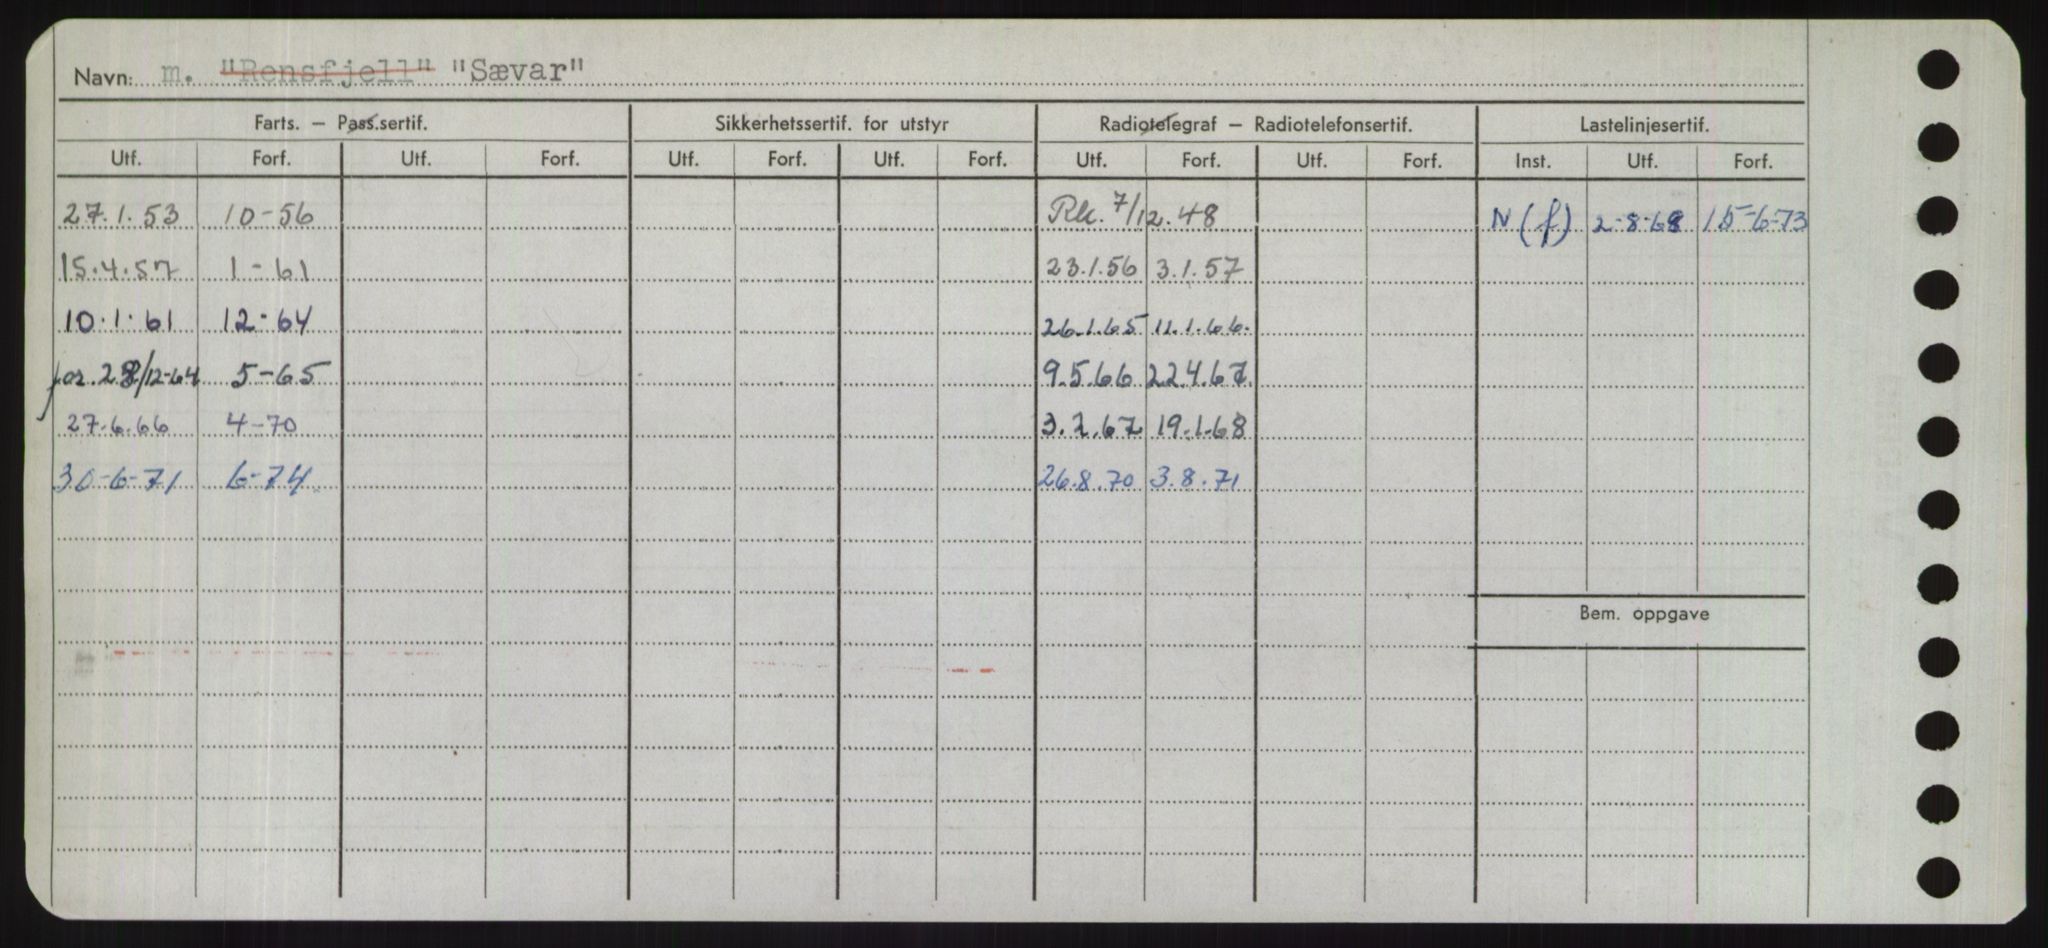 Navn: m. "Rensfjell" "Sævar"
Farts. – Pass.sertif. Sikkerhetssertif. for utstyr Radiotelegraf – Radiotelefonsertif. Lastelinjesertif.
Utf. Forf. Utf. Forf. Utf. Forf. Utf. Forf. Utf. Forf. Utf. Forf. Inst. Utf. Forf.
27.1.53 10-56 Rk. 7/12.48 N(f) 2-8-68 15-6-73
15.4.57 1-61 23.1.56 3.1.57
10.1.61 12-64 26.1.65 11.1.66.
for. 28/12-64 5-65 9.5.66 22.4.67.
27.6.66 4-70 3.2.67 19.1.68
30-6-71 6-74 26.8.70 3.8.71
Bem. oppgave